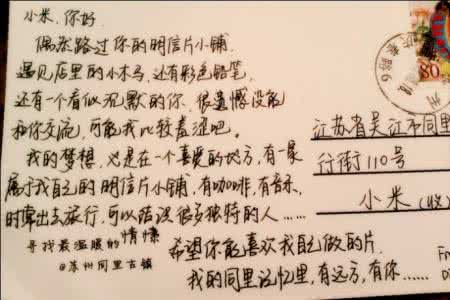 小米,你好.
偶然路过你的明信片小铺.
遇见店里的小木马,还有彩色铅笔,
还有一个看似沉默的你.很遗憾没能
和你交流,可能我比较羞涩吧.
我的梦想,也是在一个喜爱的地方,有一家
属于我自己的明信片小铺,有咖啡,有音乐,
时常出去旅行,可以结识很多独特的人……
寻找最温暖的情愫
@苏州同里古镇
希望你能喜欢我自己做的片.
我的同里记忆里,有远方,有你……
80
江苏省吴江市同里
行街110号
小米(收)